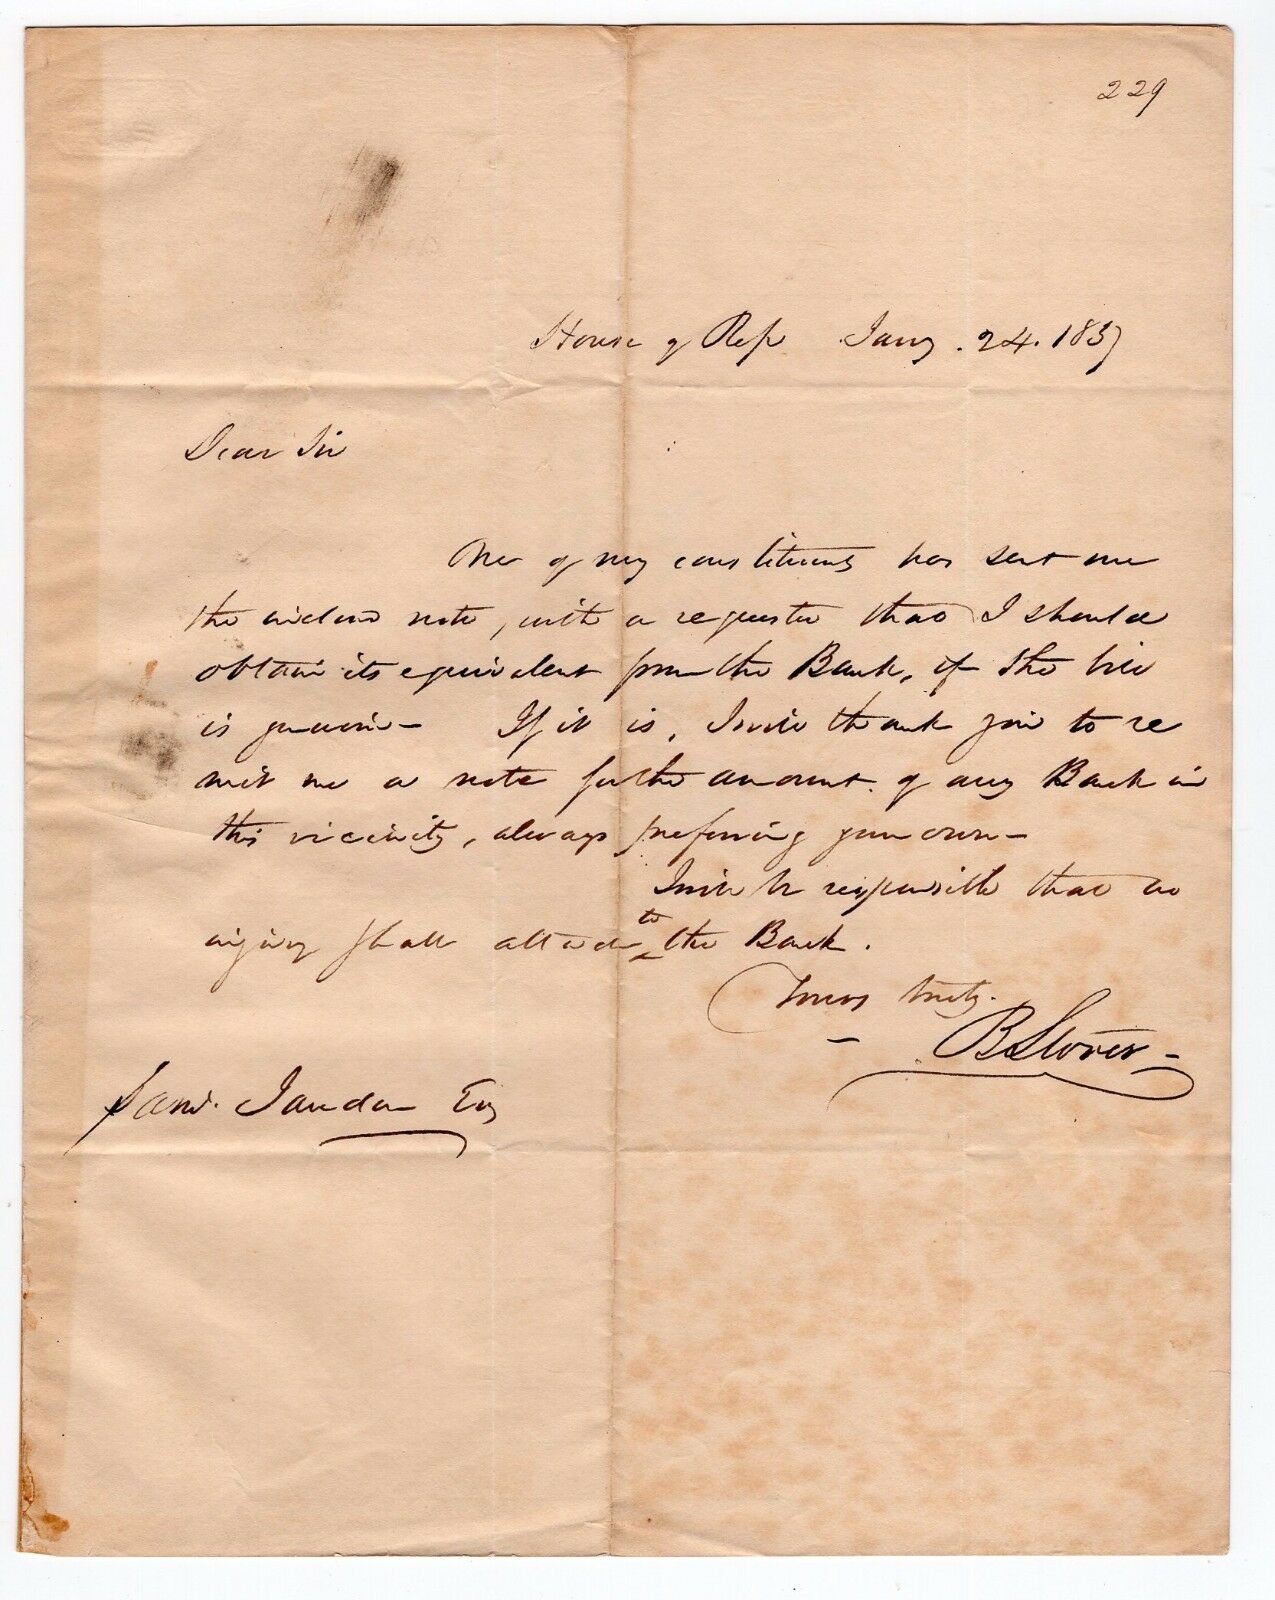 229
House of Rep Jany. 24. 1837
Dear Sir
One of my constituents has sent me
the enclosed note, with a request that I should
obtain its equivalent from the Bank, if the bill
is genuine - If it is, I will thank you to re
mit me a note for the amount of any Bank in
this vicinity, always preferring your own -
I will be responsible that no
injury shall attach to the Bank.
Yours truly.
B Storer -
Saml. Jaudon Esq